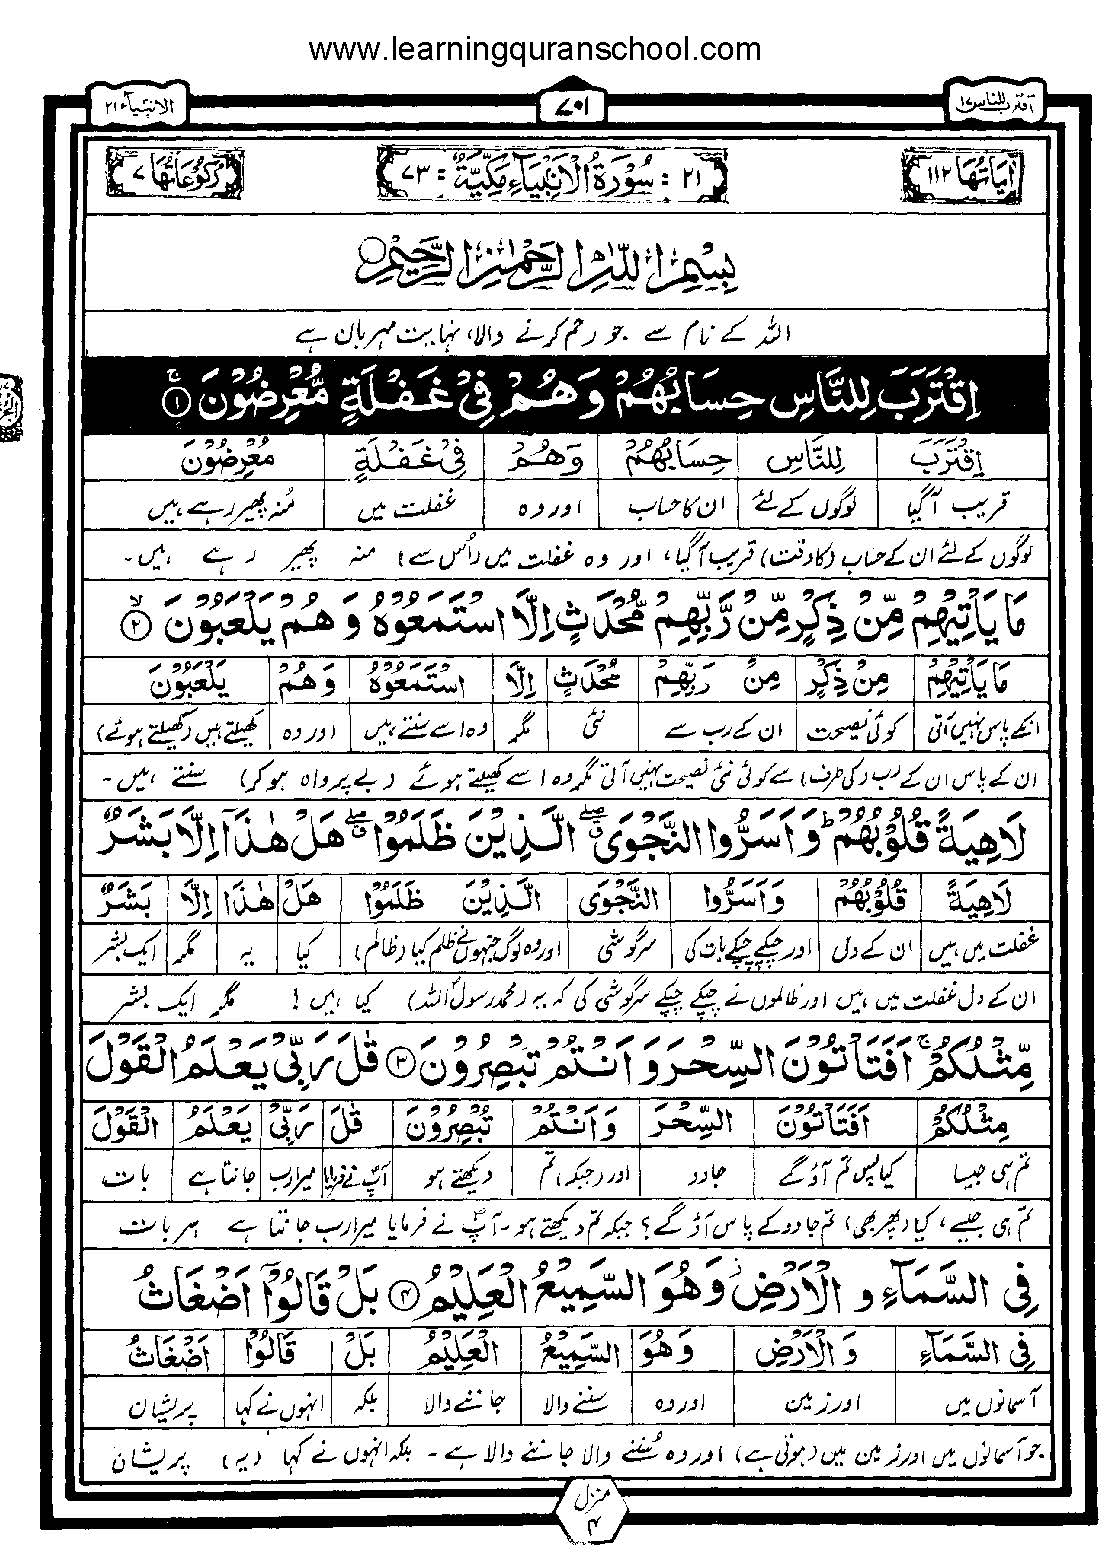 www.learningquranschool.com
اقترب للناس ۱۷
۷۰۱
الانبیاء ۲۱
اٰیَاتُهَا ۱۱۲
۲۱ : سُوْرَةُ الْاَنْۢبِیَآءِ مَكِّیَّةٌ : ۷۳
رُكُوْعَاتُهَا ۷
بِسْمِ اللّٰهِ الرَّحْمٰنِ الرَّحِیْمِ
اللہ کے نام سے جو رحم کرنے والا، نہایت مہربان ہے
اِقْتَرَبَ لِلنَّاسِ حِسَابُهُمْ وَهُمْ فِیْ غَفْلَةٍ مُّعْرِضُوْنَ ۚ﴿۱﴾
اِقْتَرَبَ لِلنَّاسِ حِسَابُهُمْ وَهُمْ فِیْ غَفْلَةٍ مُعْرِضُوْنَ
قریب آگیا لوگوں کے لئے ان کا حساب اور وہ غفلت میں مُنہ پھیر رہے ہیں
لوگوں کے لئے ان کے حساب (کا وقت) قریب آگیا، اور وہ غفلت میں (اُس سے) منہ پھیر رہے ہیں۔
مَا یَاْتِیْهِمْ مِّنْ ذِكْرٍ مِّنْ رَّبِّهِمْ مُّحْدَثٍ اِلَّا اسْتَمَعُوْهُ وَهُمْ یَلْعَبُوْنَ ۙ﴿۲﴾
مَا یَاْتِیْهِمْ مِنْ ذِكْرٍ مِنْ رَبِّهِمْ مُحْدَثٍ اِلَّا اسْتَمَعُوْهُ وَهُمْ یَلْعَبُوْنَ
انکے پاس نہیں آتی کوئی نصیحت ان کے رب سے نئی مگر وہ اسے سنتے ہیں اور وہ کھیلتے ہیں (کھیلتے ہوئے)
ان کے پاس ان کے رب (کی طرف) سے کوئی نئی نصیحت نہیں آتی مگر وہ اسے کھیلتے ہوئے (بے پرواہ ہو کر) سنتے ہیں۔
لَاهِیَةً قُلُوْبُهُمْ ؕ وَاَسَرُّوا النَّجْوَی ۖۗ الَّذِیْنَ ظَلَمُوْا ۖۗ هَلْ هٰذَاۤ اِلَّا بَشَرٌ
لَاهِیَةً قُلُوْبُهُمْ وَاَسَرُّوا النَّجْوَی الَّذِیْنَ ظَلَمُوْا هَلْ هٰذَا اِلَّا بَشَرٌ
غفلت میں ہیں ان کے دل اور چپکے چپکے بات کی سرگوشی اور وہ لوگ جنہوں نے ظلم کیا (ظالم) کیا یہ مگر ایک بشر
ان کے دل غفلت میں ہیں اور ظالموں نے چپکے چپکے سرگوشی کی کہ یہ (محمد رسول اللہ) کیا ہیں! مگر ایک بشر
مِّثْلُكُمْ ۚ اَفَتَاْتُوْنَ السِّحْرَ وَاَنْتُمْ تُبْصِرُوْنَ ﴿۳﴾ قٰلَ رَبِّیْ یَعْلَمُ الْقَوْلَ
مِثْلُكُمْ اَفَتَاْتُوْنَ السِّحْرَ وَاَنْتُمْ تُبْصِرُوْنَ قٰلَ رَبِّیْ یَعْلَمُ الْقَوْلَ
تم ہی جیسا کیا پس تم آؤ گے جادو اور (جبکہ) تم دیکھتے ہو آپؐ نے فرمایا میرا رب جانتا ہے بات
تم ہی جیسے، کیا (پھر بھی) تم جادو کے پاس آؤ گے؟ جبکہ تم دیکھتے ہو۔ آپؐ نے فرمایا میرا رب جانتا ہے ہر بات
فِی السَّمَآءِ وَالْاَرْضِ ۫ وَهُوَ السَّمِیْعُ الْعَلِیْمُ ﴿۴﴾ بَلْ قَالُوْۤا اَضْغَاثُ
فِی السَّمَآءِ وَالْاَرْضِ وَهُوَ السَّمِیْعُ الْعَلِیْمُ بَلْ قَالُوْا اَضْغَاثُ
آسمانوں میں اور زمین اور وہ سننے والا جاننے والا بلکہ انہوں نے کہا پریشان
جو آسمانوں میں اور زمین میں (ہوتی ہے) اور وہ سُننے والا جاننے والا ہے۔ بلکہ انہوں نے کہا (یہ) پریشان
منزل
۴